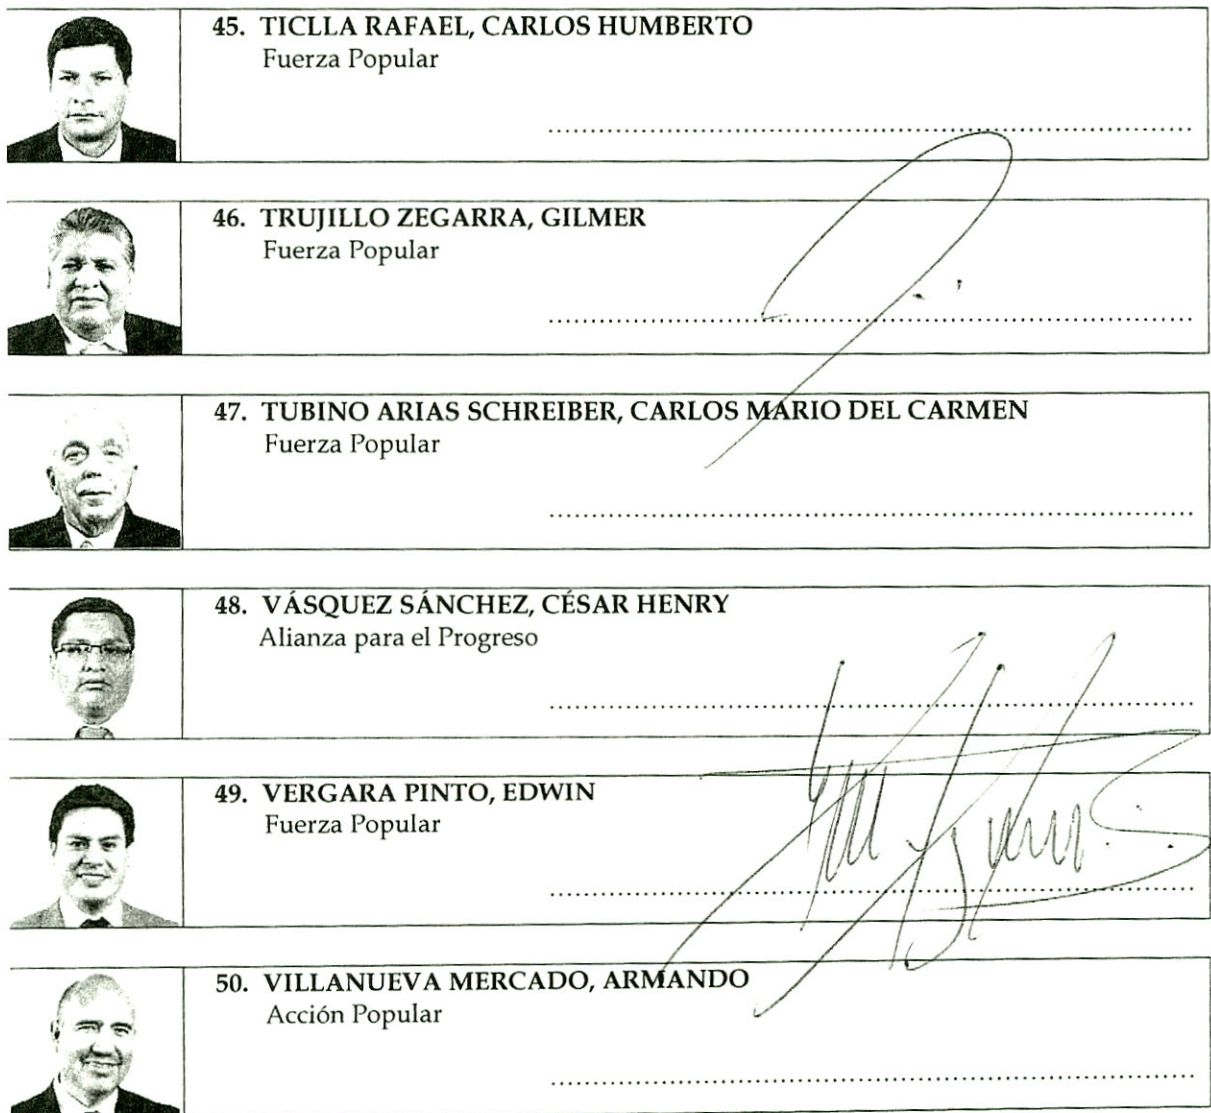 45. TICLLA RAFAEL, CARLOS HUMBERTO
Fuerza Popular
46. TRUJILLO ZEGARRA, GILMER
Fuerza Popular
47. TUBINO ARIAS SCHREIBER, CARLOS MARIO DEL CARMEN
Fuerza Popular
48. VÁSQUEZ SÁNCHEZ, CÉSAR HENRY
Alianza para el Progreso
49. VERGARA PINTO, EDWIN
Fuerza Popular
50. VILLANUEVA MERCADO, ARMANDO
Acción Popular